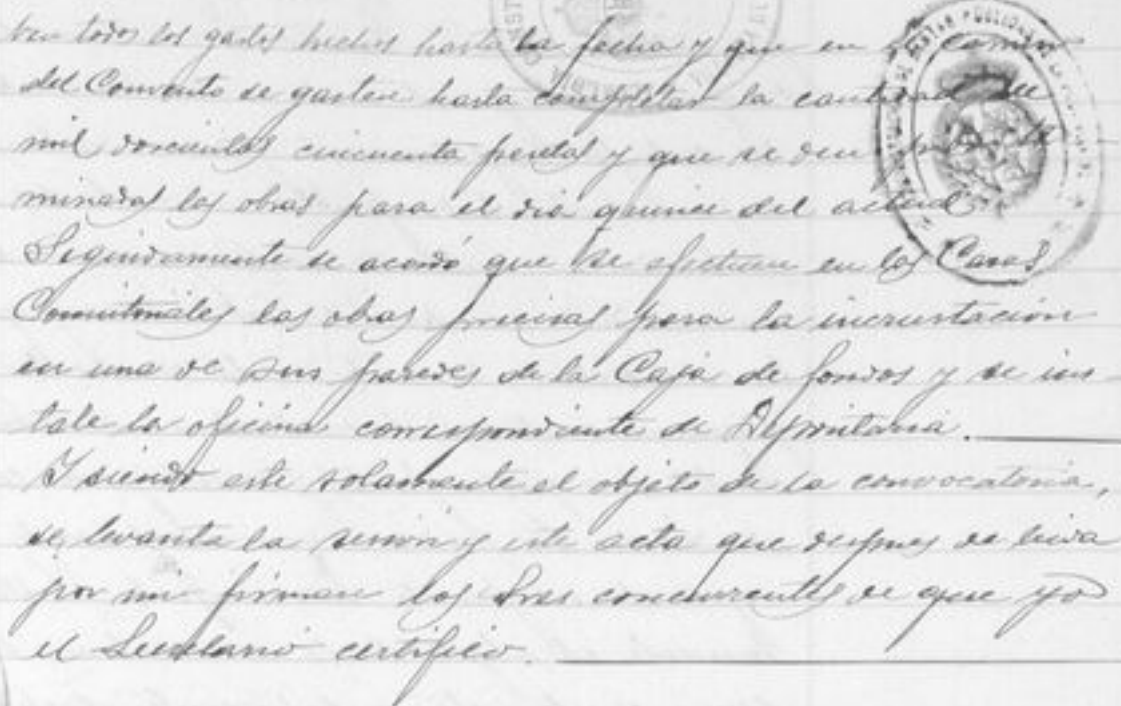 ben todos los gastos hechos hasta la fecha y que en el camino
del Convento se gasten hasta completar la cantidad de
mil doscientas cincuenta pesetas y que se den por ter
minadas las obras para el dia quince del actual.
Seguidamente se acordó que se efectuen en las Casas
Consistoriales las obras precisas para la incrustacion
en una de sus paredes de la Caja de fondos y se ins-
tale la oficina correspondiente de Depositaria.
Y siendo este solamente el objeto de la convocatoria,
se levanta la sesion y este acta que despues de leida
por mi firman los Sres concurrentes de que yo
el Secretario certifico.